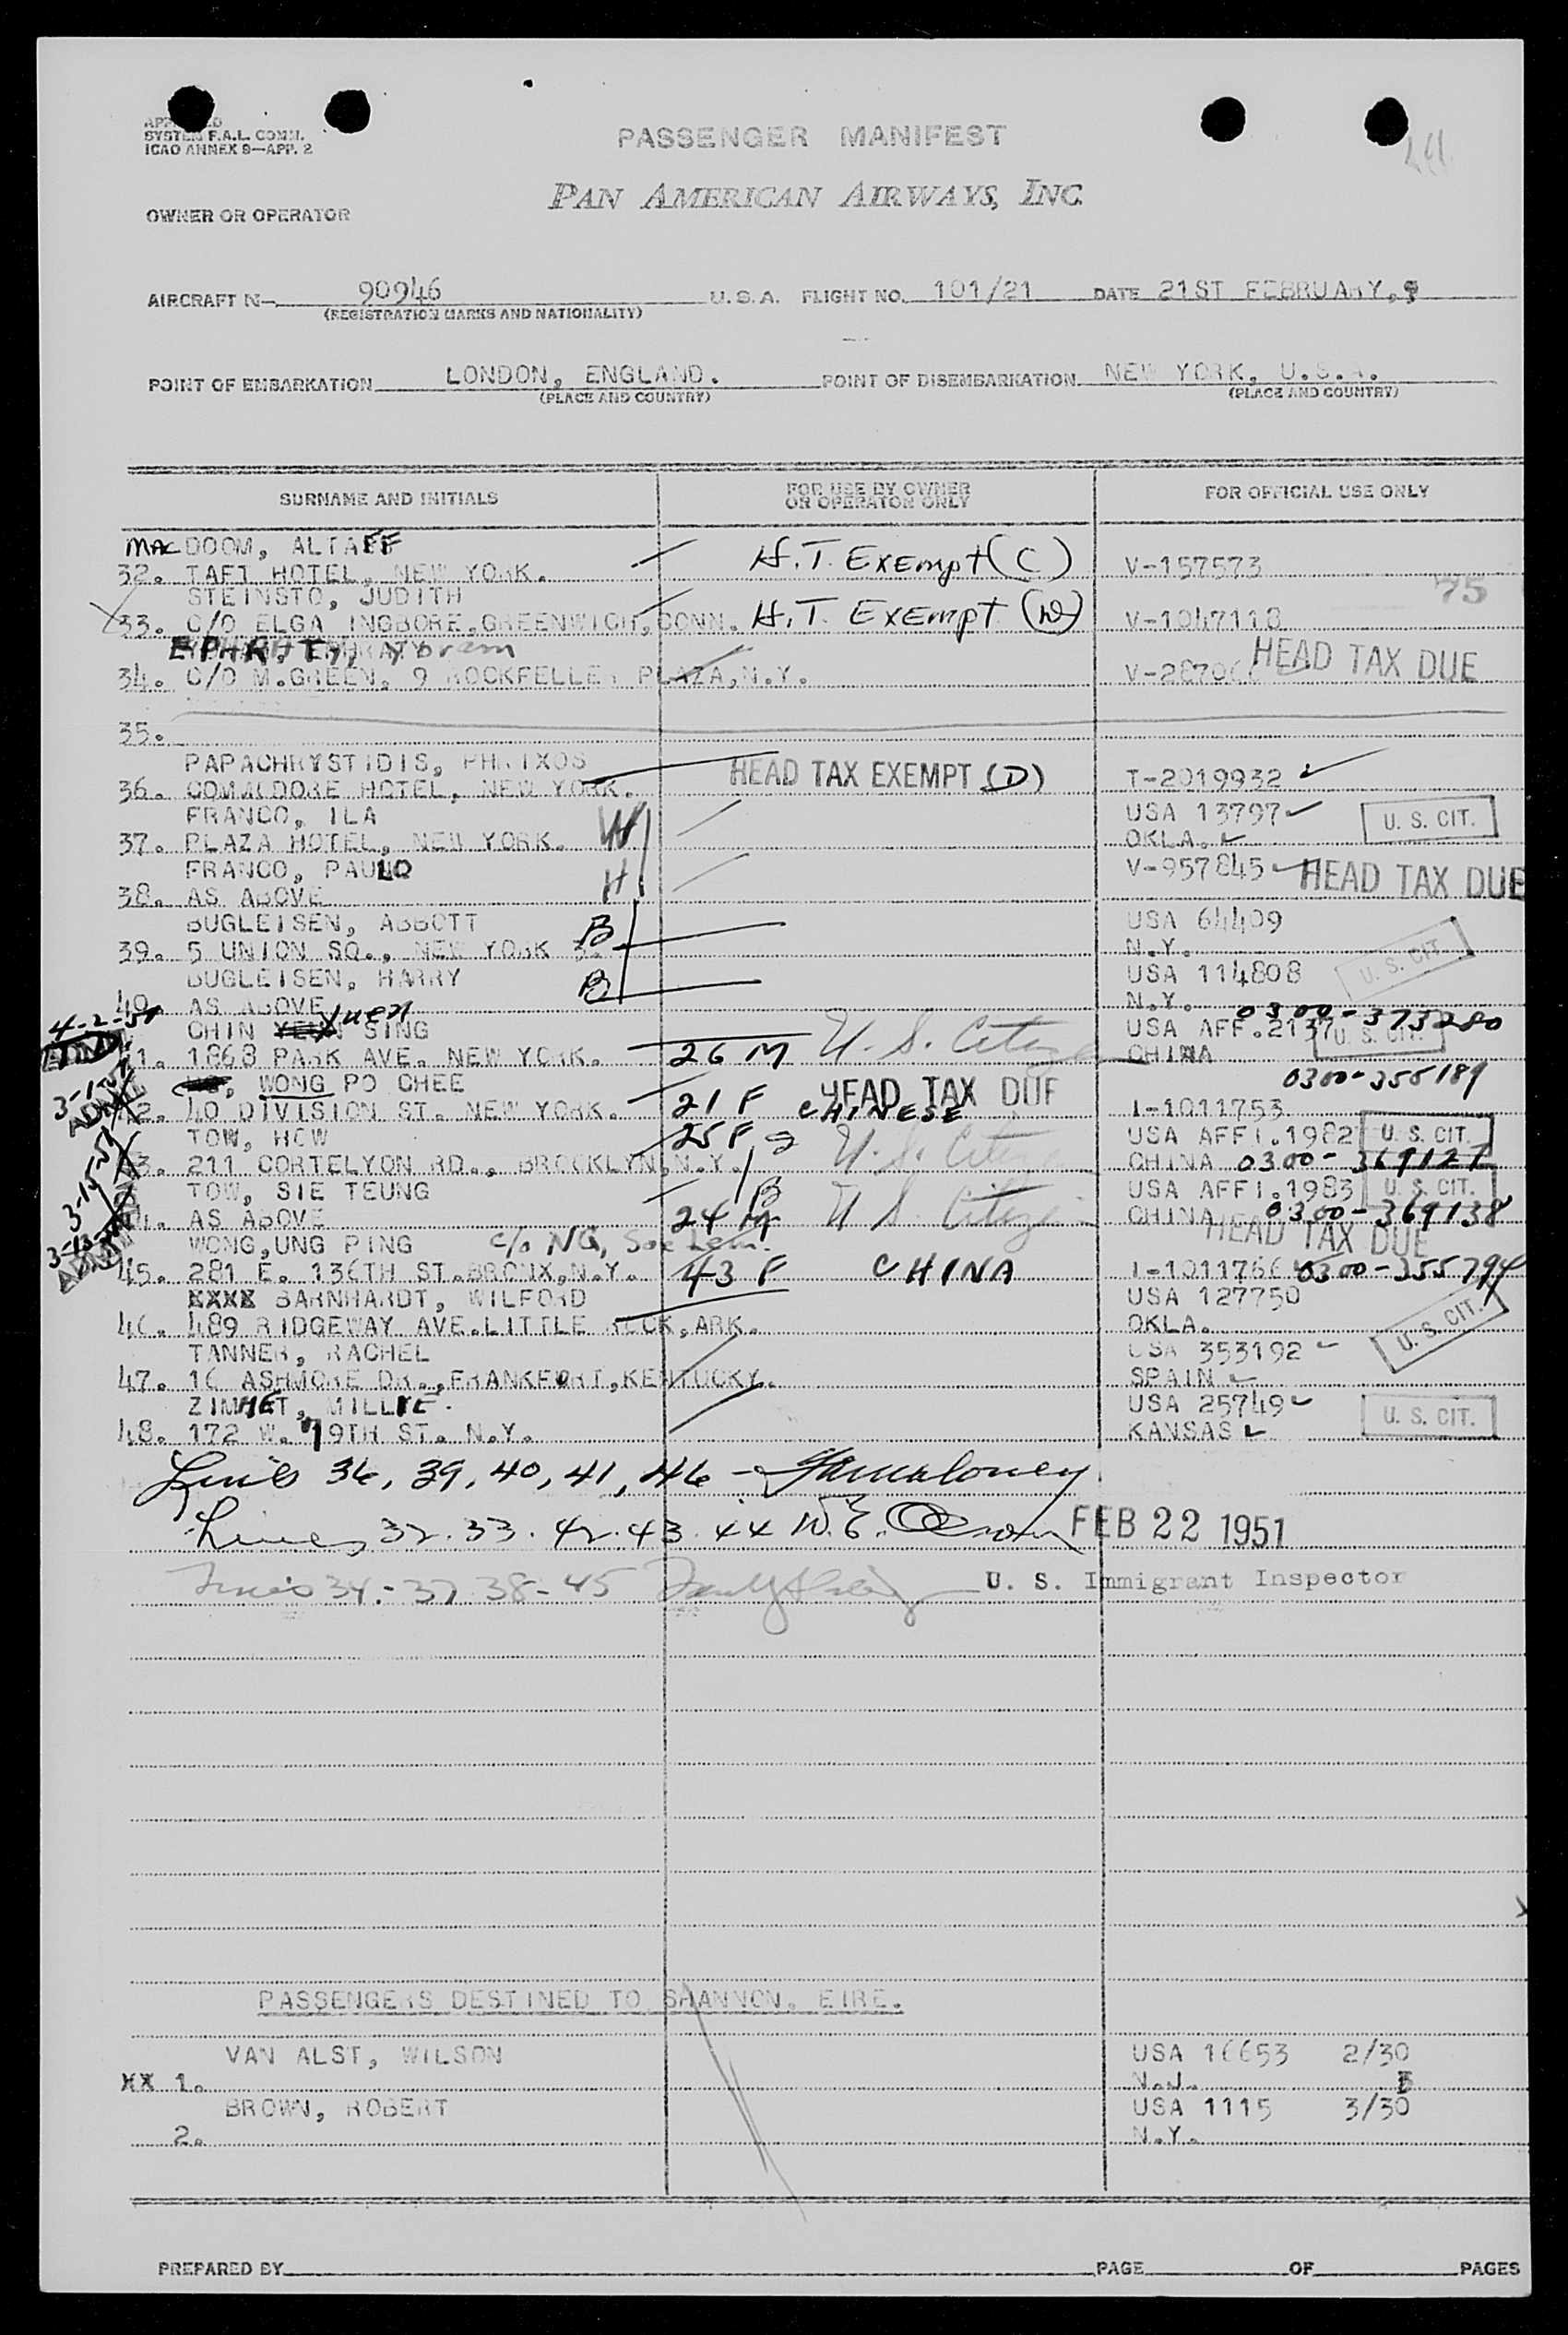 SYSTEM F.A.L. COMM.
ICAO ANNEX 9—APP. 2
PASSENGER MANIFEST
PAN AMERICAN AIRWAYS, INC.
OWNER OR OPERATOR
AIRCRAFT N— 90946 U.S.A. FLIGHT NO. 101/21 DATE 21ST FEBRUARY,
(REGISTRATION MARKS AND NATIONALITY)
POINT OF EMBARKATION LONDON, ENGLAND. POINT OF DISEMBARKATION NEW YORK, U.S.A.
(PLACE AND COUNTRY) (PLACE AND COUNTRY)
SURNAME AND INITIALS FOR USE BY OWNER OR OPERATOR ONLY FOR OFFICIAL USE ONLY
MACDOOM, ALTAFF H.T. Exempt (C)
32. TAFT HOTEL, NEW YORK. V-157573
STEINSTO, JUDITH 75
33. C/O ELGA INGBORE, GREENWICH, CONN. H.T. Exempt V-1047118
EPHRATY, HEAD TAX DUE
34. C/O M.GREEN, 9 ROCKFELLER PLAZA, N.Y.
35.
PAPACHRYSTIDIS, PHRIXOS HEAD TAX EXEMPT (D) T-2019932
36. COMMODORE HOTEL, NEW YORK.
FRANCO, ILA W USA 13797 U. S. CIT.
37. PLAZA HOTEL, NEW YORK. OKLA.
FRANCO, PAULO H V-957845 HEAD TAX DUE
38. AS ABOVE
BUGLEISEN, ABBOTT B USA 64409
39. 5 UNION SQ., NEW YORK 3. N.Y. U. S. CIT.
BUGLEISEN, HARRY B USA 114808
40. AS ABOVE N.Y. 0300-373280
4-2-51 CHIN Yuen SING U. S. Citizen USA AFF.2137 U. S. CIT.
41. 1868 PARK AVE. NEW YORK. 26 M CHINA
WONG PO CHEE HEAD TAX DUE 0300-355189
42. 40 DIVISION ST. NEW YORK. 21 F CHINESE I-1011753
TOW, HOW 25 F U. S. Citizen USA AFFI.1982 U. S. CIT.
43. 211 CORTELYON RD., BROOKLYN, N.Y. CHINA 0300-369127
TOW, SIE TEUNG B U S Citizen USA AFFI.1983 U. S. CIT.
44. AS ABOVE 24 M CHINA 0300-369138
WONG, UNG PING c/o NG, HEAD TAX DUE
45. 281 E. 136TH ST. BRONX, N.Y. 43 F CHINA 0300-355794
XXXX BARNHARDT, WILFORD USA 127750
46. 489 RIDGEWAY AVE. LITTLE ROCK, ARK. OKLA. U. S. CIT.
TANNER, RACHEL USA 353192
47. 16 ASHMORE DR., FRANKFORT, KENTUCKY. SPAIN
ZIMHET, MILLIE. USA 25749 U. S. CIT.
48. 172 W. 79TH ST. N.Y. KANSAS
Lines 36, 39, 40, 41, 46 -
Lines 32. 33. 42. 43. 44 FEB 22 1951
Lines 34.- 37 38-45 U. S. Immigrant Inspector
PASSENGERS DESTINED TO SHANNON, EIRE.
VAN ALST, WILSON USA 16653 2/30
XX 1. N.J.
BROWN, ROBERT USA 1115 3/30
2. N.Y.
PREPARED BY PAGE OF PAGES